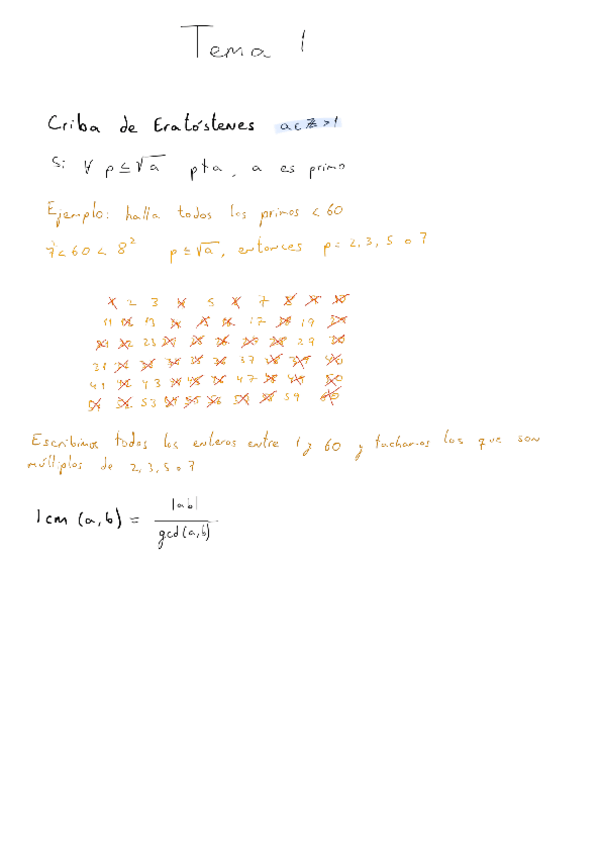 Tema 1
Criba de Eratóstenes a ∈ ℤ > 1
Si ∀ p ≤ √a p∤a, a es primo
Ejemplo: halla todos los primos < 60
7 < 60 < 8² p ≤ √a, entonces p = 2, 3, 5 o 7
1 2 3 4 5 6 7 8 9 10
11 12 13 14 15 16 17 18 19 20
21 22 23 24 25 26 27 28 29 30
31 32 33 34 35 36 37 38 39 40
41 42 43 44 45 46 47 48 49 50
51 52 53 54 55 56 57 58 59 60
Escribimos todos los enteros entre 1 y 60 y tachamos los que son
múltiplos de 2, 3, 5 o 7
lcm (a,b) = |ab| / gcd(a,b)